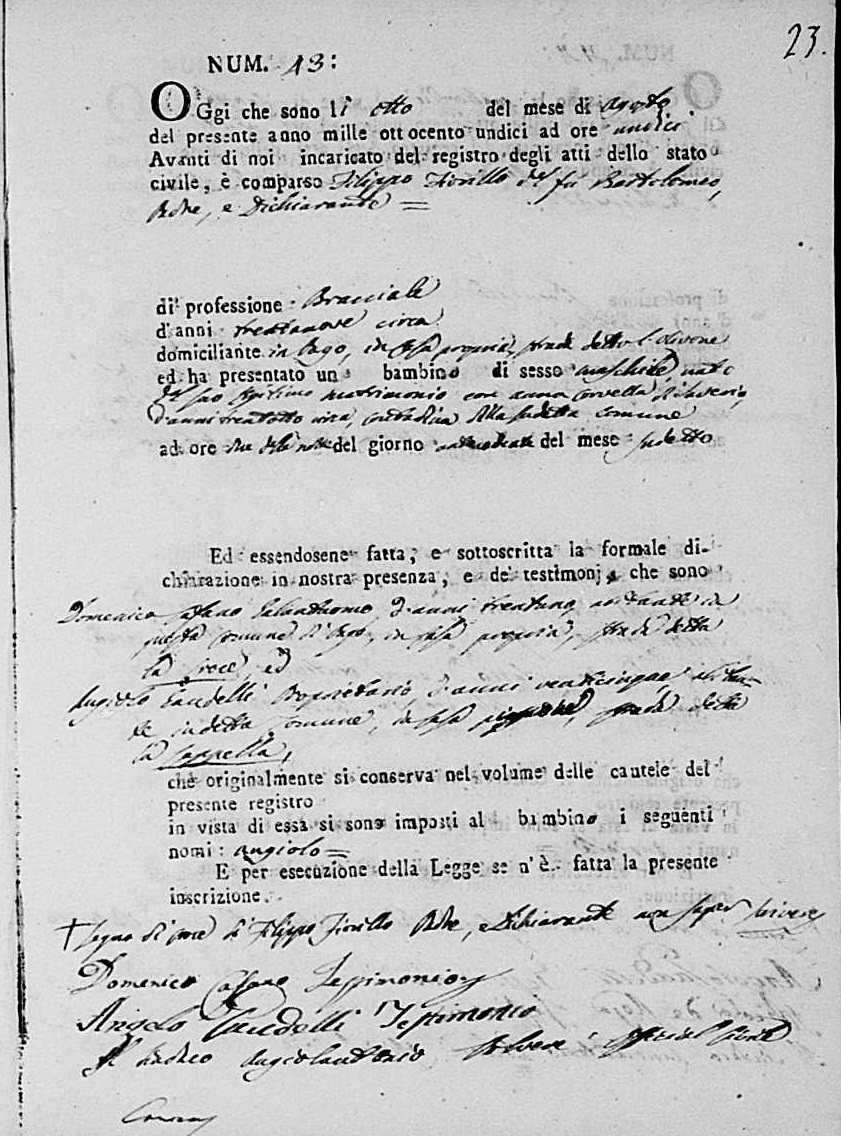 23.
NUM. 43:
OGgi che sono li otto del mese di agosto
del presente anno mille ottocento undici ad ore undici
Avanti di noi incaricato del registro degli atti dello stato
civile, è comparso Filippo Fiorillo del fù Bartolomeo,
Padre, e Dichiarante =
di professione Bracciale
d'anni trentanove circa
domiciliante in Pago, in casa propria, strada detta l'olivone
ed ha presentato un bambino di sesso maschile, nato
dal suo legittimo matrimonio con anna Cervella
d'anni trentotto circa, contadina della sudetta comune
ad ore due della notte del giorno del mese sudetto
Ed essendosene fatta, e sottoscritta la formale di-
chiarazione in nostra presenza, e de' testimonj, che sono
Domenico Cafano Galantuomo d'anni trentuno abitante in
questa comune di Pago, in casa propria, strada detta
la Croce, ed
Angiolo Taudelli Proprietario, d'anni venticinque abitan-
te in detta comune, in casa propria, strada detta
la Cappella,
che originalmente si conserva nel volume delle cautele del
presente registro
in vista di essa si sono imposti al bambino i seguenti
nomi: angiolo =
E per esecuzione della Legge se n'è fatta la presente
inscrizione.
+ Segno di croce di Filippo Fiorillo Padre, e Dichiarante non saper scrivere
Domenico Cafano Testimonio
Angelo Taudelli Testimonio
Il Sindaco Angiolantonio official Civile